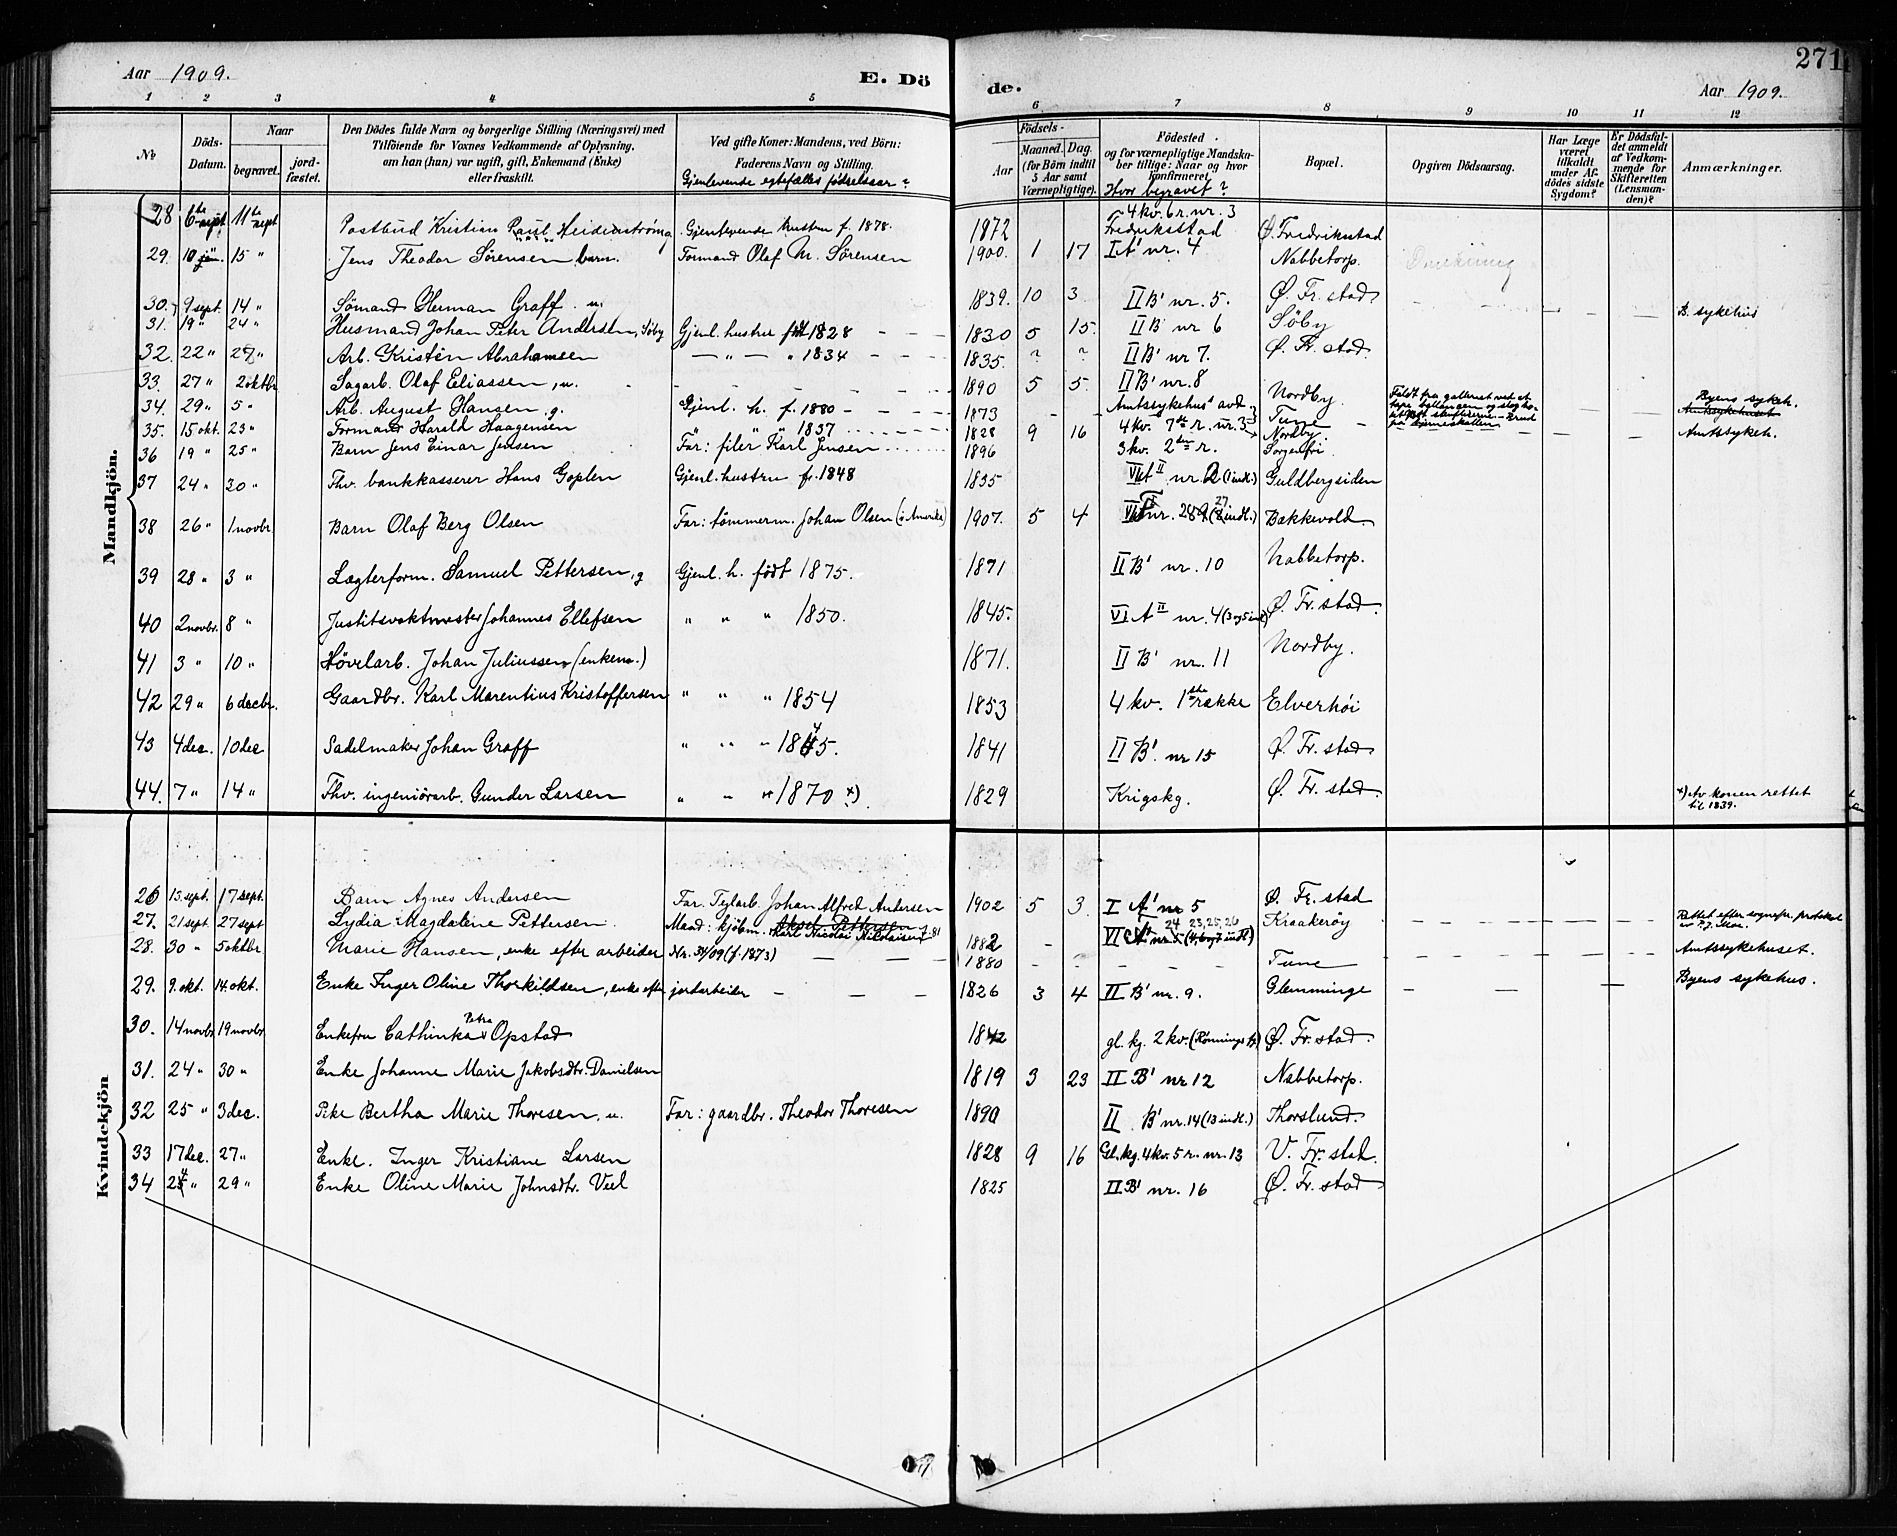 271
Aar 1909. E. Dö de. Aar 1909.
1 2 3 4 5 6 7 8 9 10 11 12
No Döds-Datum. Naar begravet. jordfæstet. Den Dödes fulde Navn og borgerlige Stilling (Næringsvei) med Tilföiende for Voxnes Vedkommende af Oplysning, om han (hun) var ugift, gift, Enkemand (Enke) eller fraskilt. Ved gifte Koner: Mandens, ved Börn: Faderens Navn og Stilling. Gjenlevende egtefælles fødselsaar? Födsels- Aar Maaned. Dag. (for Börn indtil 5 Aar samt Værnepligtige). Födested og for værnepligtige Mandskaber tillige: Naar og hvor konfirmeret. Hvor begravet? Bopæl. Opgiven Dödsaarsag. Har Læge været tilkaldt under Afdödes sidste Sygdom? Er Dödsfaldet anmeldt af Vedkommende for Skifteretten (Lensmanden)? Anmærkninger.
Mandkjön.
28 6te sept. 11te sept Postbud Kristian Paul Heidenstrøm, g Gjenlevende hustru f. 1878. 1872 4 kv. 6 r. nr. 3 Fredriksstad Ø. Fredriksstad
29. 10 15 " Jens Theodor Sørensen, barn. Formand Olaf M. Sørensen 1900. 1 17 I A' nr. 4 Nabbetorp.
30. 9 sept. 14 " Sømand Herman Graff. u. 1839. 10 3 II B' nr. 5. Ø. Fr. stad B. sykehus
31. 19 " 24 " Husmand Johan Peter Andersen, Søby Gjenl. hustru født 1828 1830 5 15. II B' nr 6 Søby
32. 22 " 27 " Arb. Kristen Abrahamsen — " — " 1834 1835. ? ? II B' nr 7. Ø. Fr. stad.
33. 27 " 2 oktbr Sagarb. Olaf Eliassen, u. 1890 5 5. II B' nr. 8 Nordby Faldt fra galleriet Byens sykeh.
34. 29 " 5 " Arb. August Hansen, g. Gjenl. h. f. 1880 1873 Amtssykehus' avd. Tune Amtssykehuset
35. 15 okt. 23 " Formand Harald Haagensen " " 1837 1828 9 16 4 kv. 7de r. nr. 3 Nordby Amtssykeh.
36 19 " 25 " Barn Jens Einar Jensen Far: filer Karl Jensen 1896 3 kv. 2den r. Sorgenfri
37 24 " 30 " Fhv. bankkasserer Hans Goplen Gjenl. hustru f. 1848 1835 VI A II nr. 2 (1 indl.) Guldbergsiden
38 26 " 1 novbr Barn Olaf Berg Olsen Far: tømmerm. Johan Olsen (i Amerika) 1907. 5 4 nr. 28 27 indl.) Bakkevold.
39 28 " 3 " Lægterform. Samuel Pettersen, g Gjenl. h. født 1875. 1871 II B' nr. 10 Nabbetorp.
40 2 novbr. 8 " Justitsvaktmester Johannes Ellefsen " " " 1850. 1845. VI A II nr. 4 (3 og 5 indl) Ø. Fr. stad.
41 3 " 10 " Høvelarb. Johan Juliussen (enkem.) 1871. II B' nr. 11 Nordby.
42 29 " 6 decbr. Gaardbr. Karl Marentius Kristoffersen " " " 1854 1853 4 kv. 1ste række Elverhøi
43 4 dec. 10 dec Sadelmaker Johan Graff " " " 1845. 1841 II B'. nr 15 Ø. Fr. stad
44. 7 " 14 " Fhv. ingeniörarb. Gunder Larsen " " " 1870 x). 1829 Krigskg. Ø. Fr. stad. x) Av konen rettet til 1839.
Kvindekjön
26 13 sept. 17 sept. Barn Agnes Andersen Far. Teglarb. Johan Alfred Andersen 1902 5 3 I A' nr 5 Ø. Fr. stad
27. 21 sept. 27 sept Lydia Magdalene Pettersen. Mand: kjøbm. Aksel Pettersen Karl Nicolai Nikolaisen f. 81 1882 VI A' nr. 5 (4, 6 og 7 indl) 24 23, 25, 26 Kraakerøy Rettet efter sognepr. protokol
28. 30 " 5 oktbr Marie Hansen, enke efter arbeider Nr. 34/09 (f. 1873) 1880 Tune Amtssykehuset.
29. 9. okt. 14. okt. Enke Inger Oline Thorkildsen, enke efter jordarbeider 1826 3 4 II B' nr. 9. Glemminge Byens sykehus.
30. 14 novbr 19 novbr Enkefru Cathinka Petra Opstad 1842 gl. kg. 2 kv. Ø. Fr. stad.
31. 24 " 30 " Enke Johanne Marie Jakobsdtr. Danielsen 1819 3 23 II B' nr 12 Nabbetorp.
32 25 " 3 dec. Pike Bertha Marie Thoresen, u. Far: gaardbr. Theodor Thoresen 1890 II B' nr. 14 (13 indl.) Thorslund.
33 17 dec. 27 " Enke. Inger Kristiane Larsen 1828 9 16 Gl. kg. 4 kv. 5 r. nr. 13 V. Fr. stad.
34 24 " 29 " Enke Oline Marie Johnsdtr. Viel 1825 II B' nr. 16 Ø. Fr. stad